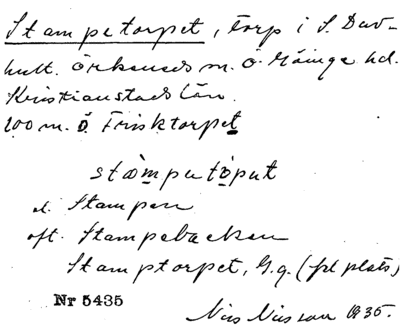 Stampetorpet, torp i S. Dav-
hult. Örkeneds sn. Ö. Göinge hd.
Kristianstads län.
200 m. Ö Frisktorpet
stàmpetòput
el. Stampen
oft. Stampebacken
Stamptorpet, G.g. (pl plats)
Nr 5435
Nils Nilsson 1935.